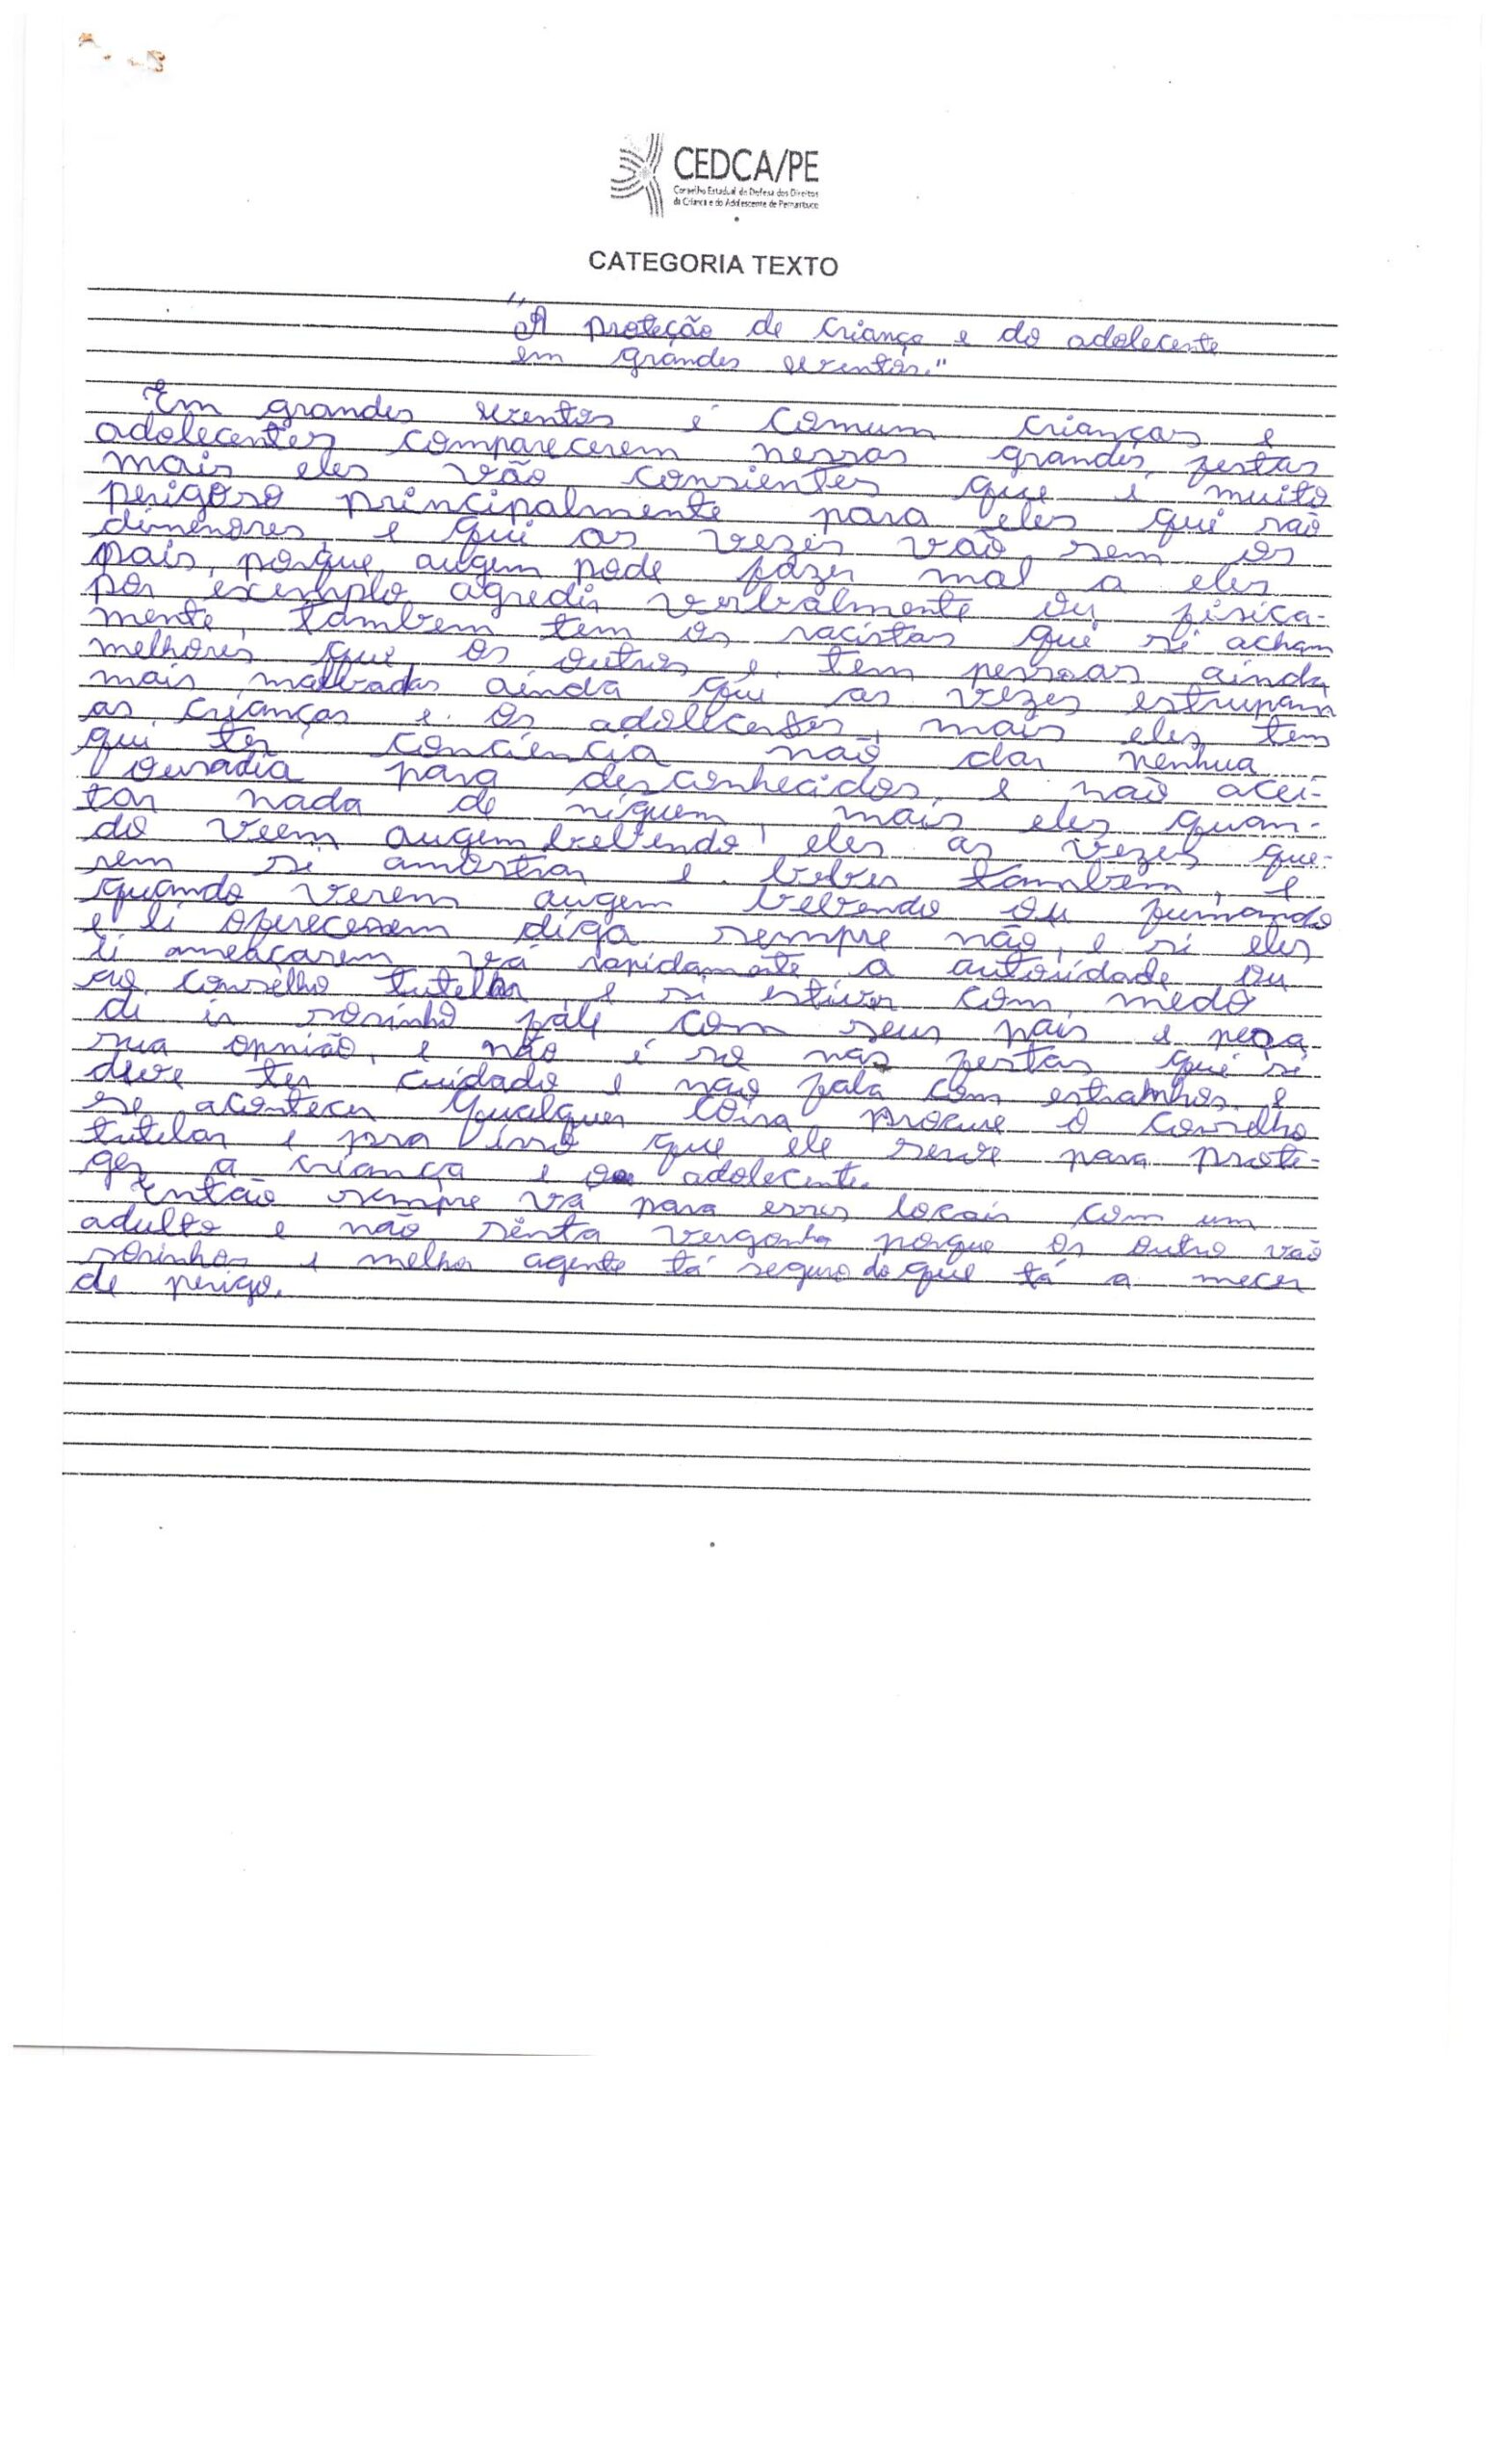 CEDCA/PE
Conselho Estadual de Defesa dos Direitos
da Criança e do Adolescente de Pernambuco
CATEGORIA TEXTO
"A proteção de criança e do adolecente
em grandes eventos."
Em grandes eventos é comum crianças e
adolecentes comparecerem nessas grandes festas
mais eles vão consientes que é muito
perigoso principalmente para eles que são
dimenores, e qui as vezes vão sem os
pais, porque augem pode fazer mal a eles
por exemplo agredir verbalmente ou fisica-
mente, tambem tem os racistas que si acham
melhores que os outros e tem pessoas ainda
mais malvadas ainda qui as vezes estrupam
as crianças e os adolecentes, mais eles tem
qui ter conciencia não dar nenhua
ousadia para desconhecidos, e não acei-
tar nada de niguem, mais eles quan-
do veem augem bebendo eles as vezes que-
rem si amostrar e beber também, e
quando verem augem bebendo ou fumando
e li oferecerem diga sempre não, e si eles
li ameaçarem vá rapidamente a autoridade ou
ao conselho tutelar, e si estiver com medo
di ir sosinho fale com seus pais e peça
sua opnião, e não é so nas festas que si
deve ter cuidado e não fala com estranhos e
se acontecer qualquer coisa procure o conselho
tutelar e para isso que ele serve para prote-
ger a criança e o adolecente.
Então sempre vá para esses locais com um
adulto e não sinta vergonha porque os outro vão
sosinhos e melhor agente tá seguro do que tá a mecer
de perigo.